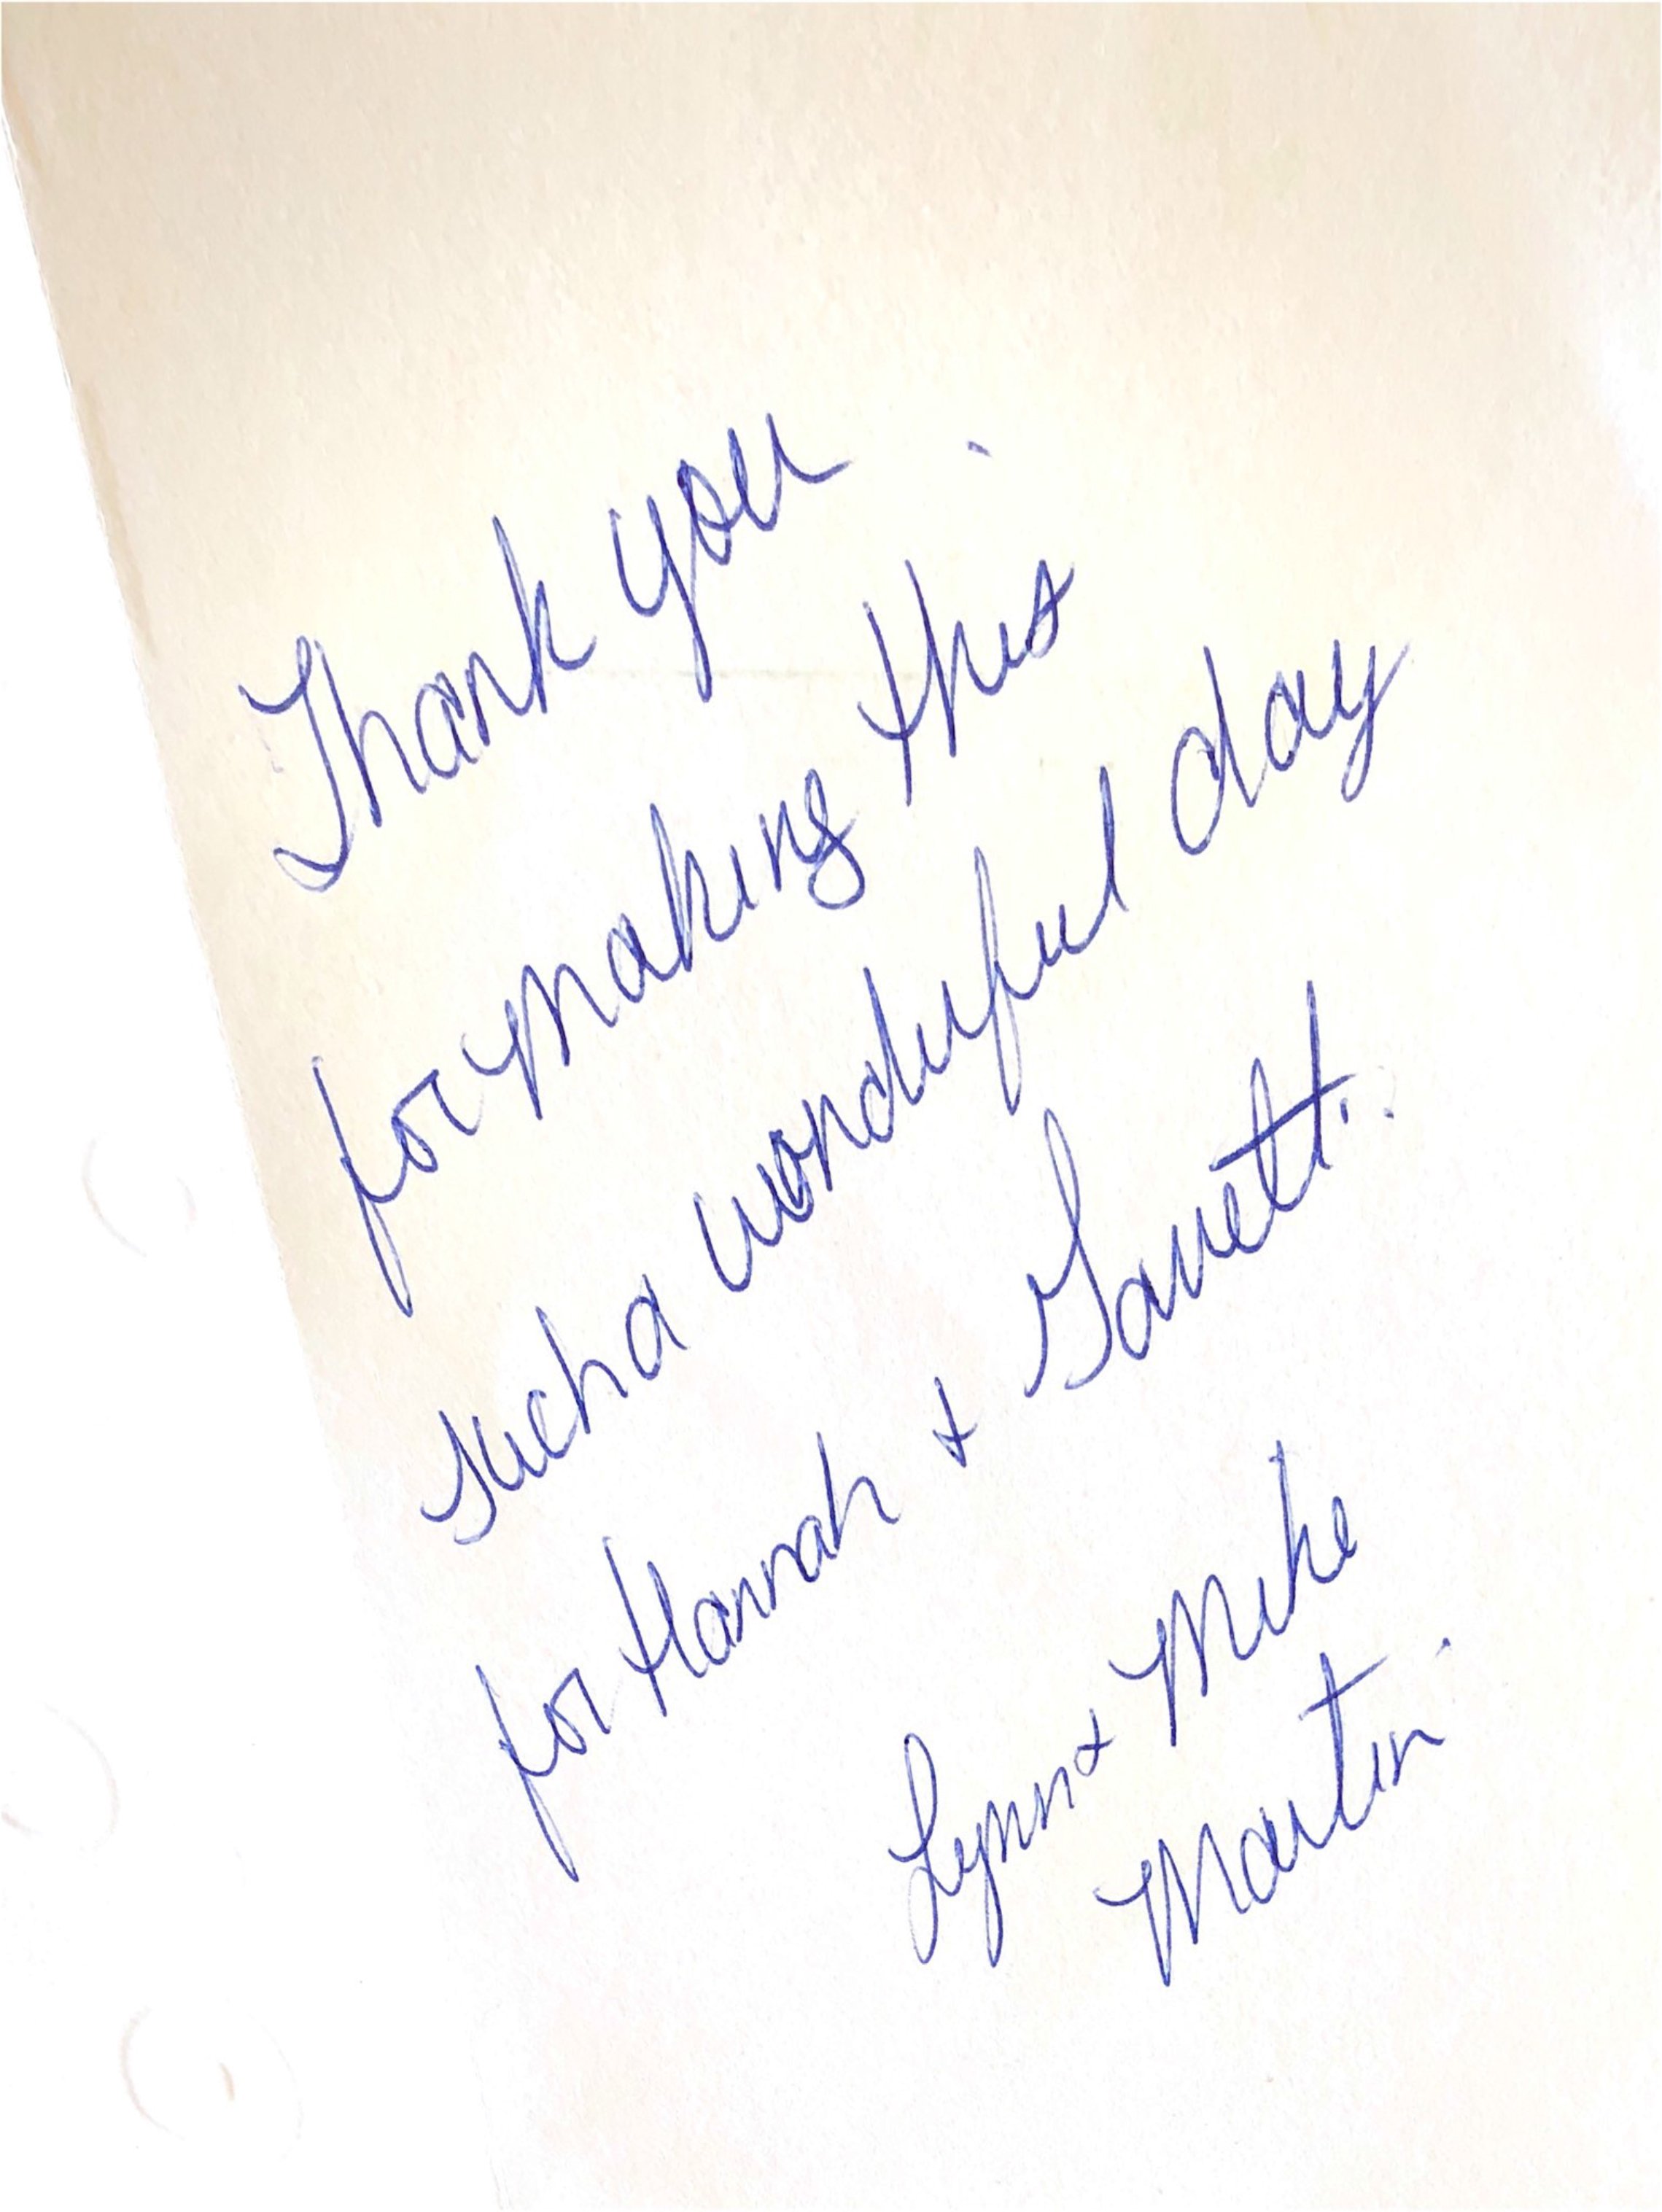 Thank you
for making this
such a wonderful day
for Hannah + Garrett.
Lynn + Mike
Martin